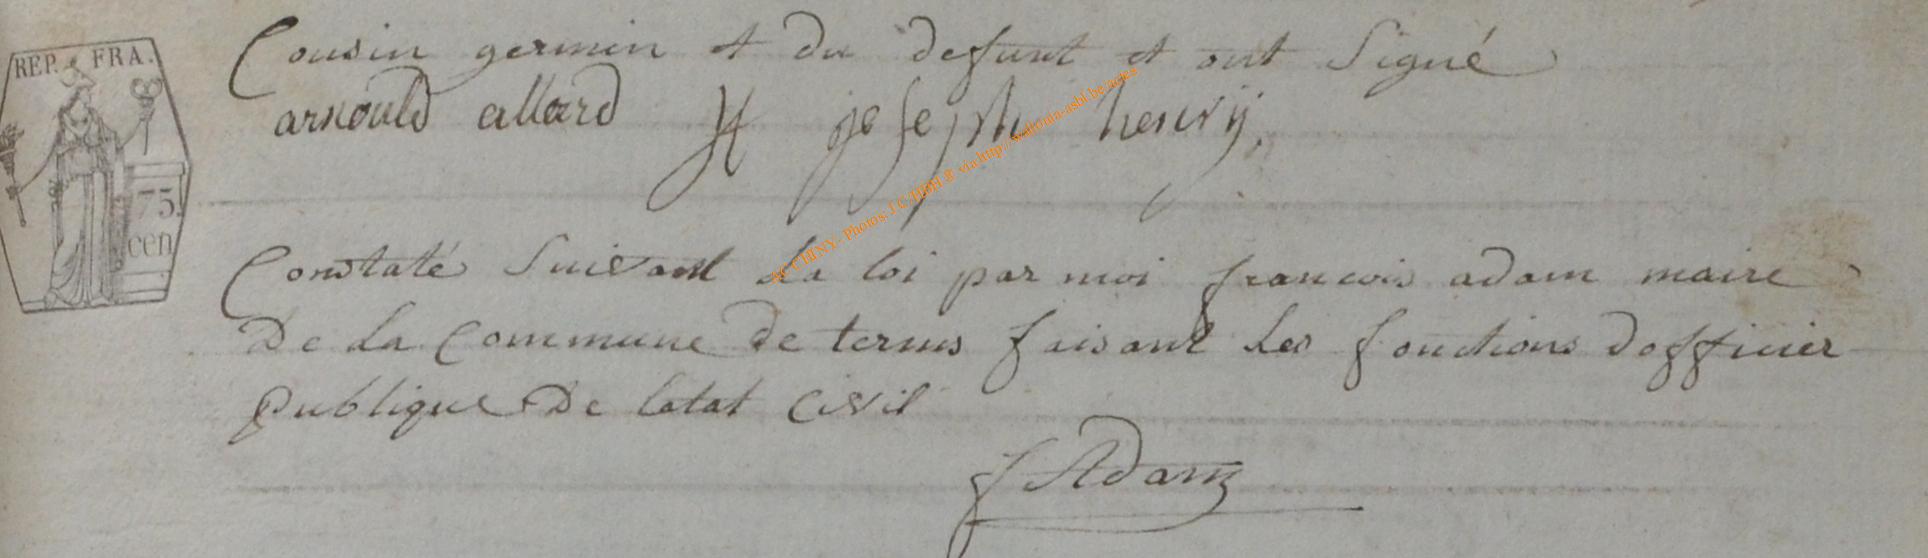 REP. FRA.
75.
cen
Cousin germin et du defunt et ont Signé
arnould allard H joseph henrÿ.
AC CHINY - Photos: J.C. HBH @ via http://wallonia-asbl.be/actes
Constaté Suivant La loi par moi francois adam maire
De La Commune de termes faisant Les fonctions dofficier
Publique De latat Civil
f Adam